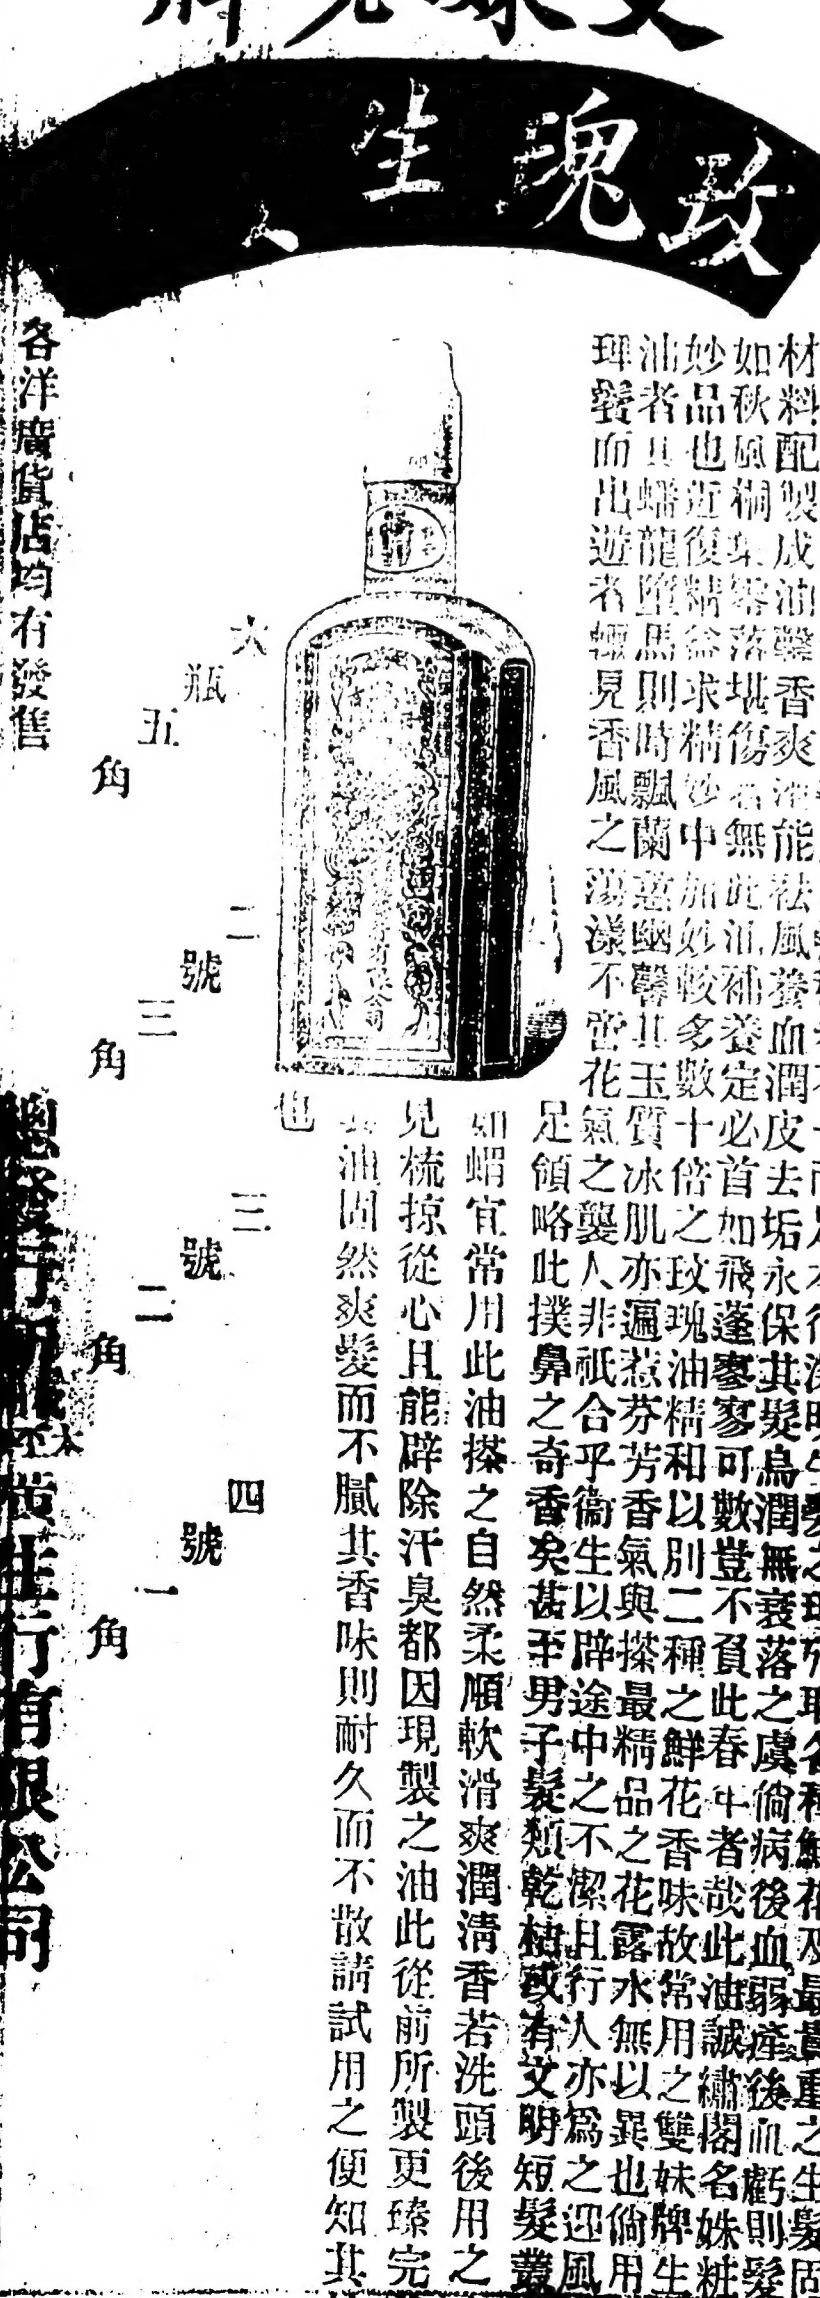 雙妹老牌
玫瑰生
材料配製成油馨香爽滑能祛風養血潤皮去垢永保其髮烏潤無衰落之虞倘病後血弱產後血虧則髮
如秋風桐葉零落堪傷若無此油補養定必首如飛蓬寥寥可數豈不負此春年者哉此油誠繡閣名姝粧
妙品也近復精益求精妙中加妙較多數十倍之玫瑰油精和以別二種之鮮花香味故常用之雙妹牌生
油者其蟠龍墮馬則時飄蘭蕙幽馨其玉質冰肌亦遍惹芬芳香氣與搽最精品之花露水無以異也倘用
理鬢而出遊者輒見香風之蕩漾不啻花氣之襲人非祇合乎衞生以辟途中之不潔且行人亦爲之迎風
足領略此撲鼻之奇香矣甚至男子髮類乾枯或有文明短髮叢
如蝟宜常用此油搽之自然柔順軟滑爽潤清香若洗頭後用之
見梳掠從心且能辟除汗臭都因現製之油此從前所製更臻完
油固然爽髮而不膩其香味則耐久而不散請試用之便知其
也
大瓶五角
二號三角
三號二角
四號一角
各洋廣貨店均有發售
總發行所
廣生行有限公司